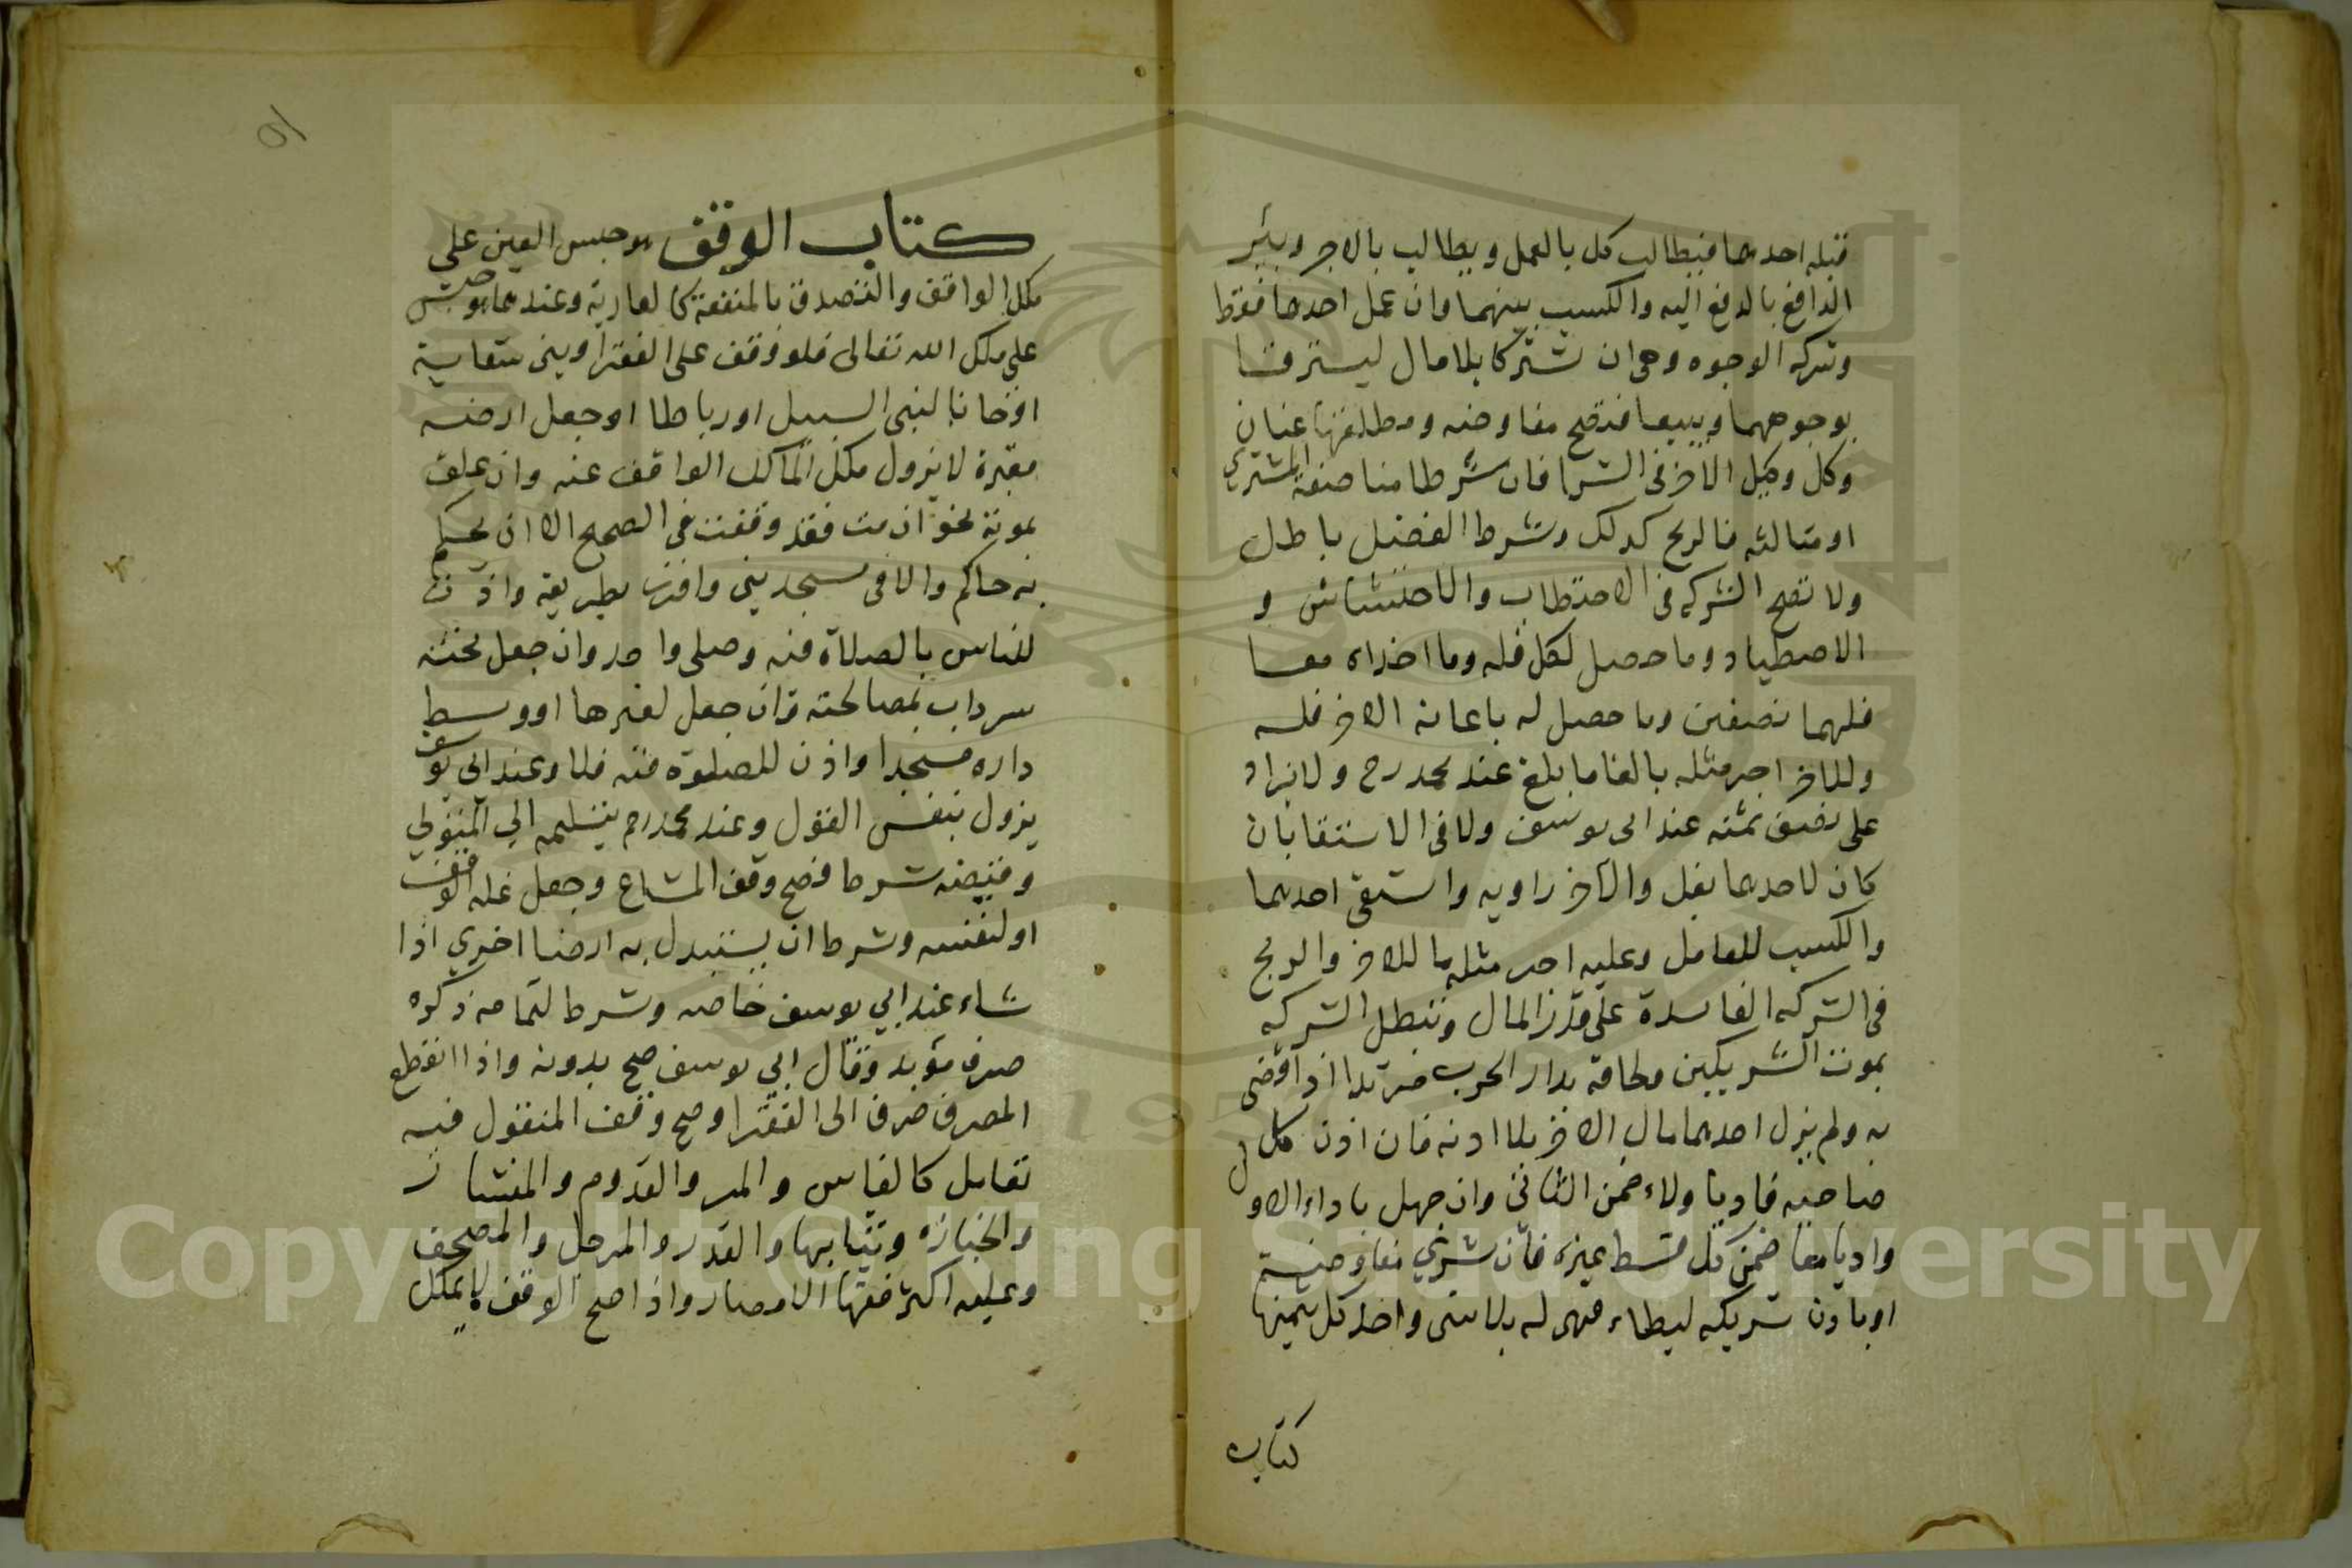 قبله احدهما فيطالب كل بالعمل ويطالب بالاجر ويبرئ
الدافع بالدفع اليه والكسب بينهما وان عمل احدهما فقط
وشركه الوجوه وهى ان يشتركا بلا مال ليشتريا
بوجوههما ويبيعا فتصح مفاوضه ومطلقها عنان
وكل وكيل الاخر فى الشرا فان شرطا مناصفة المشترى
او مثالثه فالربح كذلك وشرط الفضل باطل
ولا تصح الشركه فى الاحتطاب والاحتشاش و
الاصطياد وما حصل لكل فله وما اخذاه معا
فلهما نصفين وما حصل له باعانة الاخر فله
وللاخر اجر مثله بالغا ما بلغ عند محمد رح ولا يزاد
على نصف ثمنه عند ابى يوسف ولا فى الاستقا بان
كان لاحدهما بغل والاخر راويه واستقى احدهما
والكسب للعامل وعليه اجر مثل ما للاخر والربح
فى الشركه الفاسدة على قدر المال وتبطل الشركه
بموت الشريكين ولحاقه بدار الحرب مرتدا اذا قضى
به ولم يزل احدهما مال الاخر بلا اذنه فان اذن كل
صاحبه فاديا ولاء ضمن الثانى وان جهل باداء الاول
واديا معا ضمن كل قسط غيره فان شرى مفاوض
او باذن شريكه ليطاء فهى له بلا شى واخذ كل بثمنها
كتاب
كتاب الوقف هو حبس العين على
ملك الواقف والتصدق بالمنفعة كالعارية وعندهما هو حبس
على ملك الله تعالى فلو وقف على الفقرا او بنى سقاية
او خانا لبنى السبيل او رباطا او جعل ارضه
مقبرة لا يزول ملك المالك الواقف عنه وان علق
بموته نحو ان مت فقد وقفت فى الصحيح الا ان يحكم
به حاكم والا فى مسجد بنى وافرز بطريقه واذن
للناس بالصلاة فيه وصلى واحد وان جعل تحته
سرداب لمصالحته وان جعل لغيرها او وسط
داره مسجدا واذن للصلوة فيه فلا وعند ابى يوسف
يزول بنفس القول وعند محمد رح بتسليمه الى المتولى
وقبضه شرط فصح وقف المشاع وجعل غله الوقف
او لنفسه وشرط ان يستبدل به ارضا اخرى اذا
شاء عند ابى يوسف خاصه وشرط لتمامه ذكره
صرف مؤبد وقال ابى يوسف صح بدونه واذا انقطع
المصرف صرف الى الفقرا وصح وقف المنقول فيه
تعامل كالفاس والمر والقدوم والمنشار
والجنازه وثيابها والقدر والمرجل والمصحف
وعليه اكثر فقها الامصار واذا صح الوقف لا يملك
Copyright © King Saud University
1957